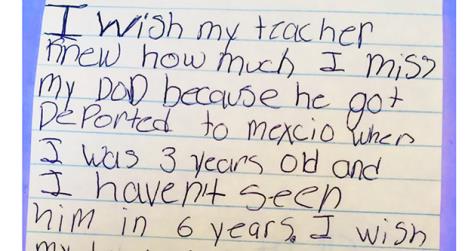 I wish my teacher
knew how much I miss
my DaD because he got
DePorted to mexcio when
I was 3 years old and
I haven't seen
him in 6 years. I wish